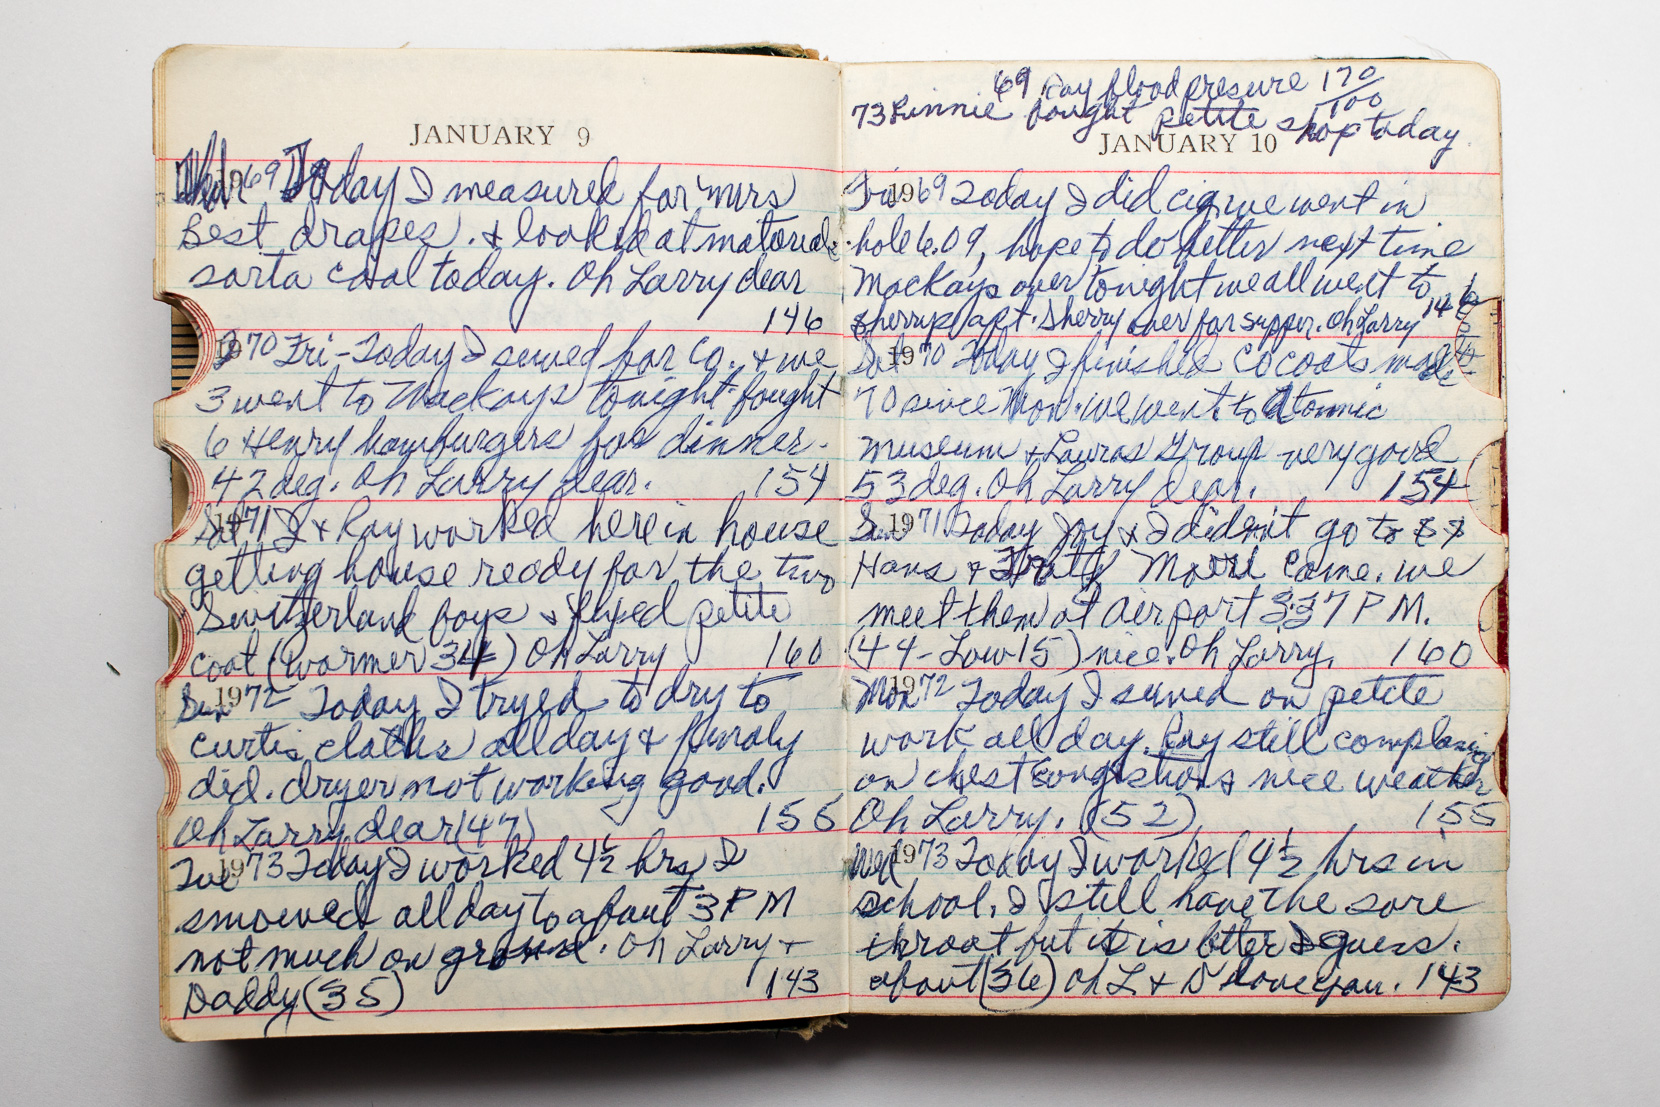 JANUARY 9
69 Today I measured for Mrs
Best drapes. & looked at materials
sorta cool today. Oh Larry dear
146
1970 Fri - Today I sewed for Co. & we
3 went to Mackays tonight. bought
6 Henry hamburgers for dinner.
42 deg. Oh Larry dear. 154
Sat 1971 I & Ray worked here in house
getting house ready for the two
Switzerland boys & fixed petite
coat (warmer 34) Oh Larry 160
Sun 1972 Today I tryed to dry to
curtis cloths all day & finaly
did. dryer not working good.
Oh Larry dear (47) 156
Tue 1973 Today I worked 4½ hrs I
smowed all day to about 3 PM
not much on ground. Oh Larry +
Daddy (35) 143
69 Ray blood presure 170/100
73 Rinnie bought petite shop today
JANUARY 10
Fri 1969 Today I did cig we went in
hole 6.09, hope to do better next time
Mackays over tonight we all went to
Sherrys apt. Sherry over for supper. Oh Larry 146
Sat 1970 Today I finished Co coats made
70 since Mon. we went to Atomic
museum & Lauras Group very good
53 deg. Oh Larry dear. 154
Sun 1971 Today Joy & I didn't go to
Hans & Come. we
meet them at airport 3:37 PM.
(44 - Low 15) nice. Oh Larry. 160
Mon 1972 Today I sewed on petite
work all day. Ray still complaning
on chest congestion & nice weather
Oh Larry. (52) 155
Wed 1973 Today I worked 4½ hrs in
school. I still have the sore
throat but it is better I guess.
about (36) Oh L & D I love you. 143